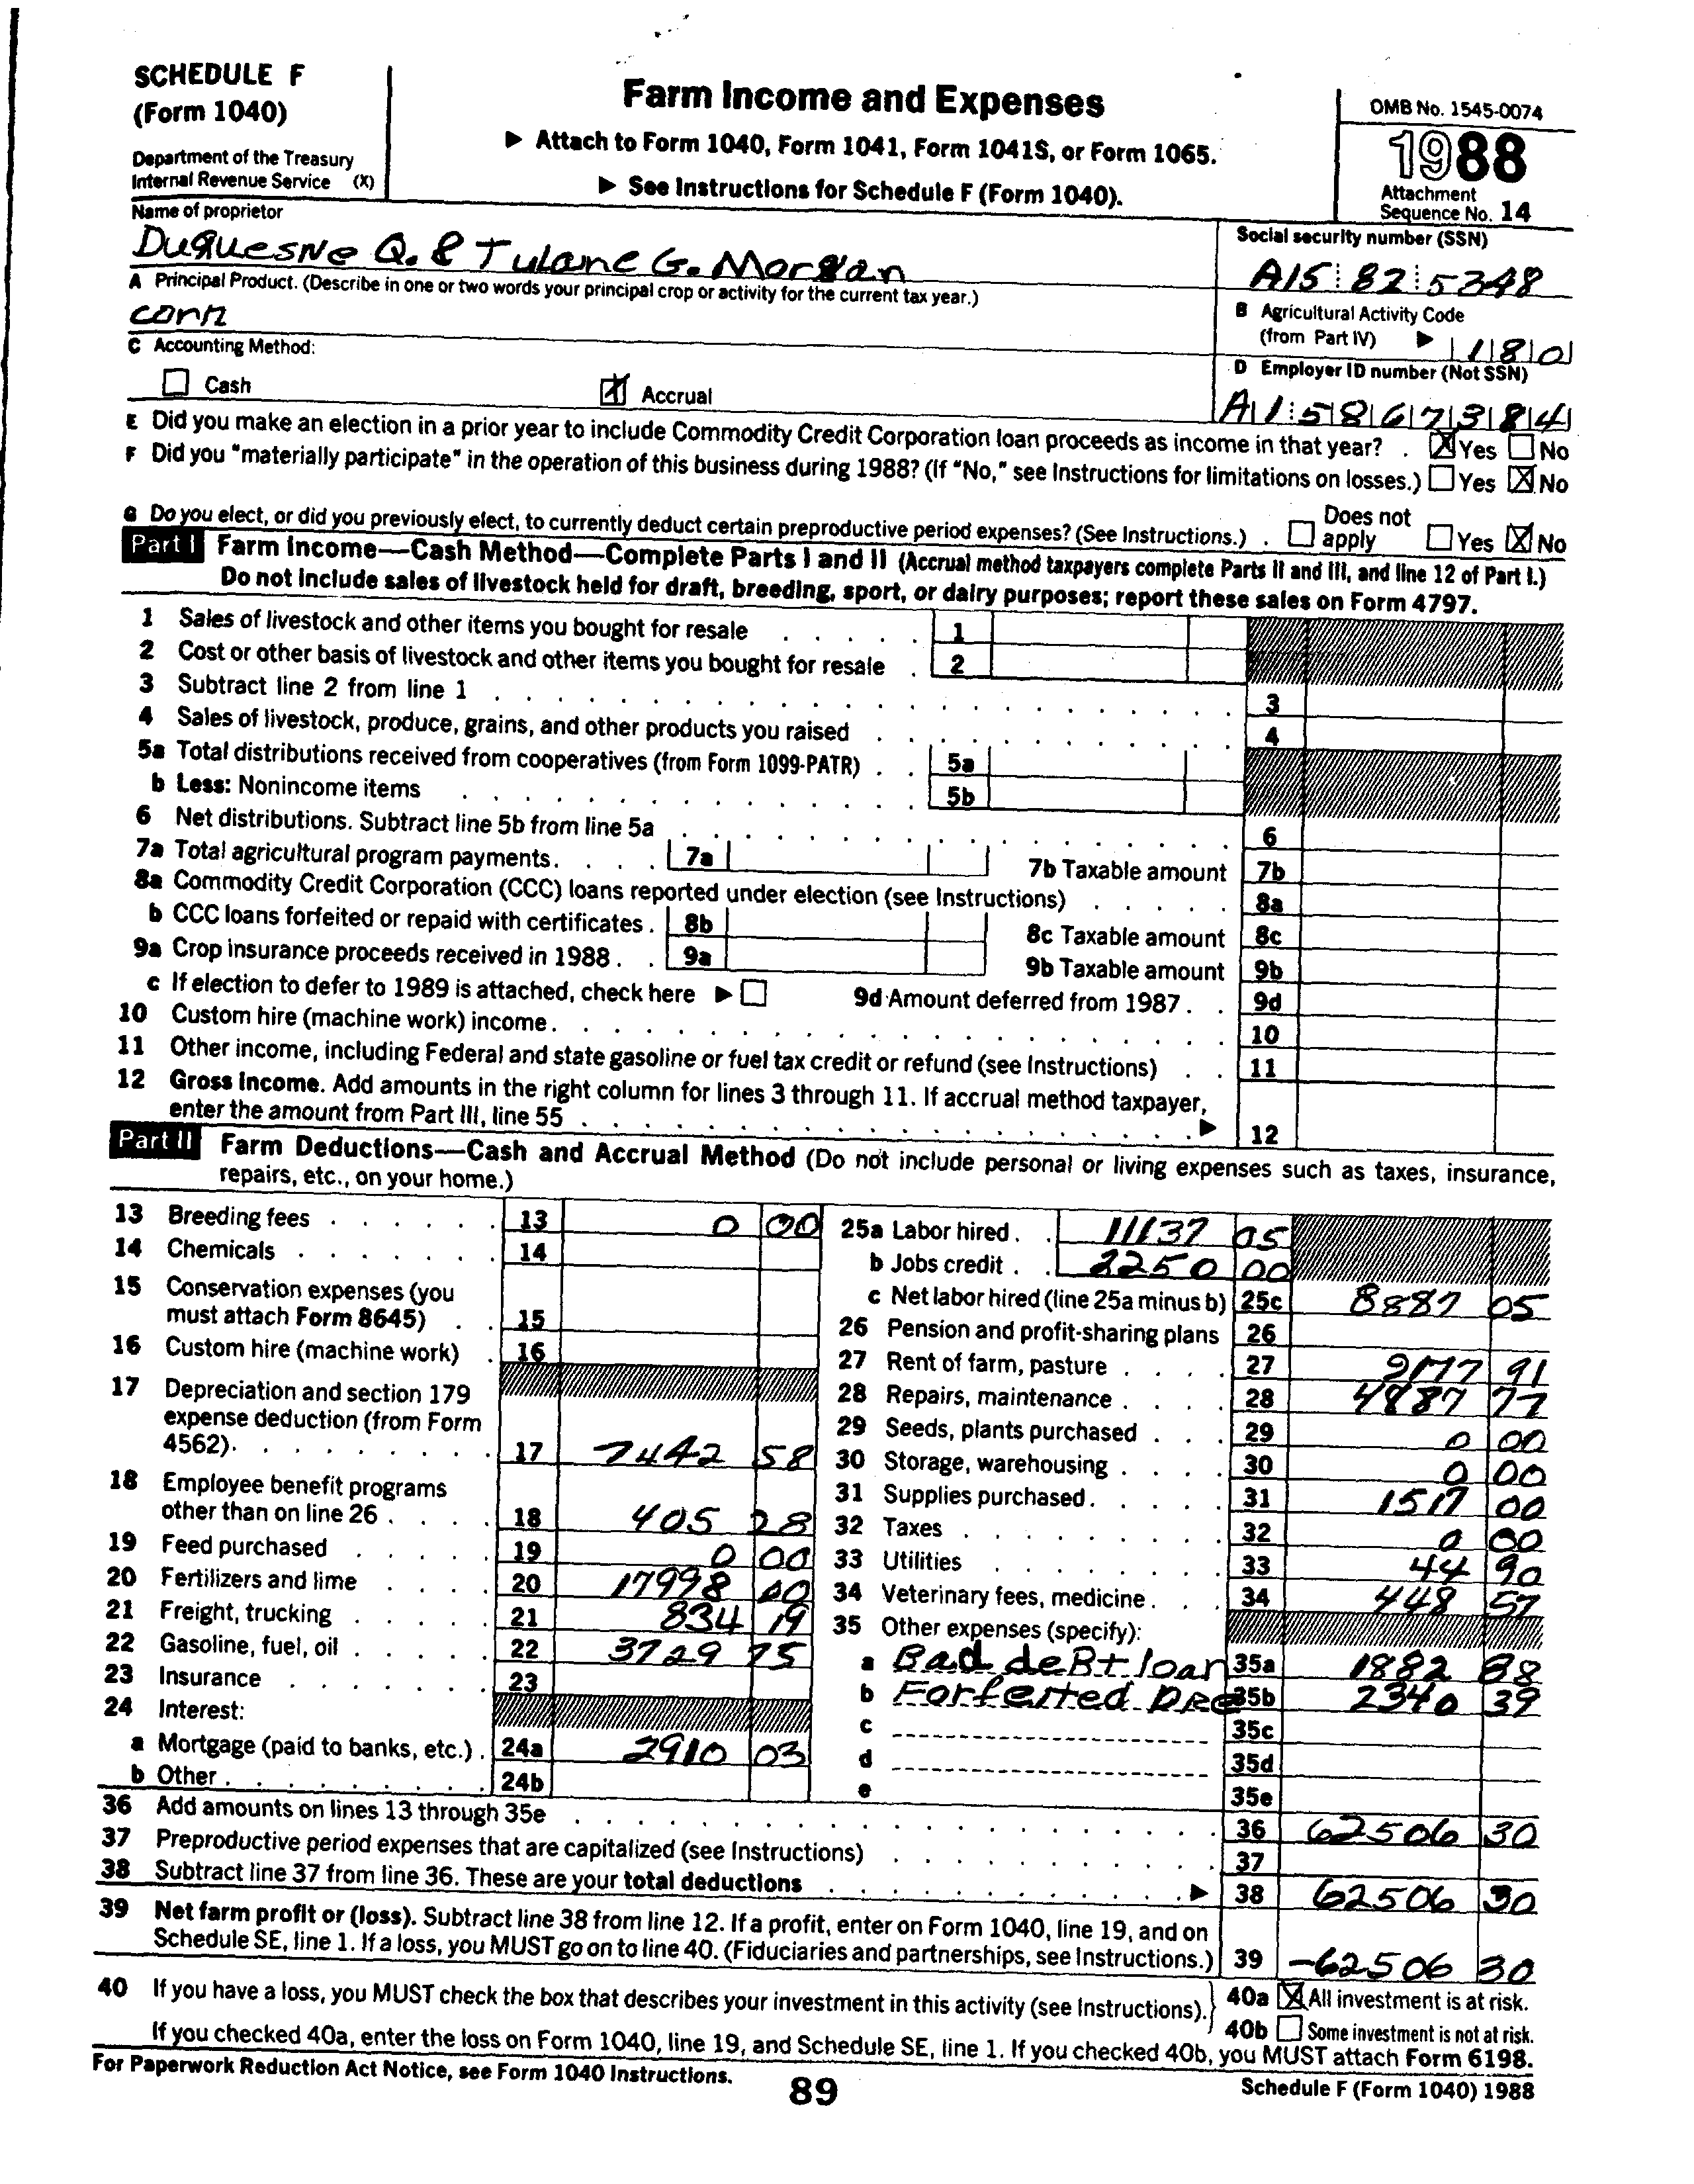 SCHEDULE F
(Form 1040)
Department of the Treasury
Internal Revenue Service (X)
Farm Income and Expenses
▶ Attach to Form 1040, Form 1041, Form 1041S, or Form 1065.
▶ See Instructions for Schedule F (Form 1040).
OMB No. 1545-0074
1988
Attachment
Sequence No. 14
Name of proprietor
Duquesne Q. & Tulane G. Morgan
Social security number (SSN)
A15 82 5348
A Principal Product. (Describe in one or two words your principal crop or activity for the current tax year.)
corn
B Agricultural Activity Code
(from Part IV) ▶ 180
C Accounting Method:
Cash Accrual
D Employer ID number (Not SSN)
A1 5867384
E Did you make an election in a prior year to include Commodity Credit Corporation loan proceeds as income in that year? . Yes No
F Did you "materially participate" in the operation of this business during 1988? (If "No," see Instructions for limitations on losses.) Yes No
G Do you elect, or did you previously elect, to currently deduct certain preproductive period expenses? (See Instructions.) . Does not apply Yes No
Part I Farm Income—Cash Method—Complete Parts I and II (Accrual method taxpayers complete Parts II and III, and line 12 of Part I.)
Do not include sales of livestock held for draft, breeding, sport, or dairy purposes; report these sales on Form 4797.
1 Sales of livestock and other items you bought for resale 1
2 Cost or other basis of livestock and other items you bought for resale 2
3 Subtract line 2 from line 1 3
4 Sales of livestock, produce, grains, and other products you raised 4
5a Total distributions received from cooperatives (from Form 1099-PATR) 5a
b Less: Nonincome items 5b
6 Net distributions. Subtract line 5b from line 5a 6
7a Total agricultural program payments. 7a 7b Taxable amount 7b
8a Commodity Credit Corporation (CCC) loans reported under election (see Instructions) 8a
b CCC loans forfeited or repaid with certificates 8b 8c Taxable amount 8c
9a Crop insurance proceeds received in 1988 9a 9b Taxable amount 9b
c If election to defer to 1989 is attached, check here ▶ 9d Amount deferred from 1987 9d
10 Custom hire (machine work) income. 10
11 Other income, including Federal and state gasoline or fuel tax credit or refund (see Instructions) 11
12 Gross Income. Add amounts in the right column for lines 3 through 11. If accrual method taxpayer,
enter the amount from Part III, line 55 ▶ 12
Part II Farm Deductions—Cash and Accrual Method (Do not include personal or living expenses such as taxes, insurance,
repairs, etc., on your home.)
13 Breeding fees 13 0 00
14 Chemicals 14
15 Conservation expenses (you
must attach Form 8645) 15
16 Custom hire (machine work) 16
17 Depreciation and section 179
expense deduction (from Form
4562). 17 7442 58
18 Employee benefit programs
other than on line 26 18 405 28
19 Feed purchased 19 0 00
20 Fertilizers and lime 20 17998 00
21 Freight, trucking 21 834 19
22 Gasoline, fuel, oil 22 3729 75
23 Insurance 23
24 Interest:
a Mortgage (paid to banks, etc.) 24a 2910 03
b Other 24b
25a Labor hired 11137 05
b Jobs credit 2250 00
c Net labor hired (line 25a minus b) 25c 8887 05
26 Pension and profit-sharing plans 26
27 Rent of farm, pasture 27 9177 91
28 Repairs, maintenance 28 4887 77
29 Seeds, plants purchased 29 0 00
30 Storage, warehousing 30 0 00
31 Supplies purchased 31 1517 00
32 Taxes 32 0 00
33 Utilities 33 44 90
34 Veterinary fees, medicine 34 448 57
35 Other expenses (specify):
a Bad deBt loan 35a 1882 88
b Forfeited Dre 35b 2340 39
c 35c
d 35d
e 35e
36 Add amounts on lines 13 through 35e 36 62506 30
37 Preproductive period expenses that are capitalized (see Instructions) 37
38 Subtract line 37 from line 36. These are your total deductions ▶ 38 62506 30
39 Net farm profit or (loss). Subtract line 38 from line 12. If a profit, enter on Form 1040, line 19, and on
Schedule SE, line 1. If a loss, you MUST go on to line 40. (Fiduciaries and partnerships, see Instructions.) 39 -62506 30
40 If you have a loss, you MUST check the box that describes your investment in this activity (see Instructions). 40a All investment is at risk.
40b Some investment is not at risk.
If you checked 40a, enter the loss on Form 1040, line 19, and Schedule SE, line 1. If you checked 40b, you MUST attach Form 6198.
For Paperwork Reduction Act Notice, see Form 1040 Instructions.
89
Schedule F (Form 1040) 1988